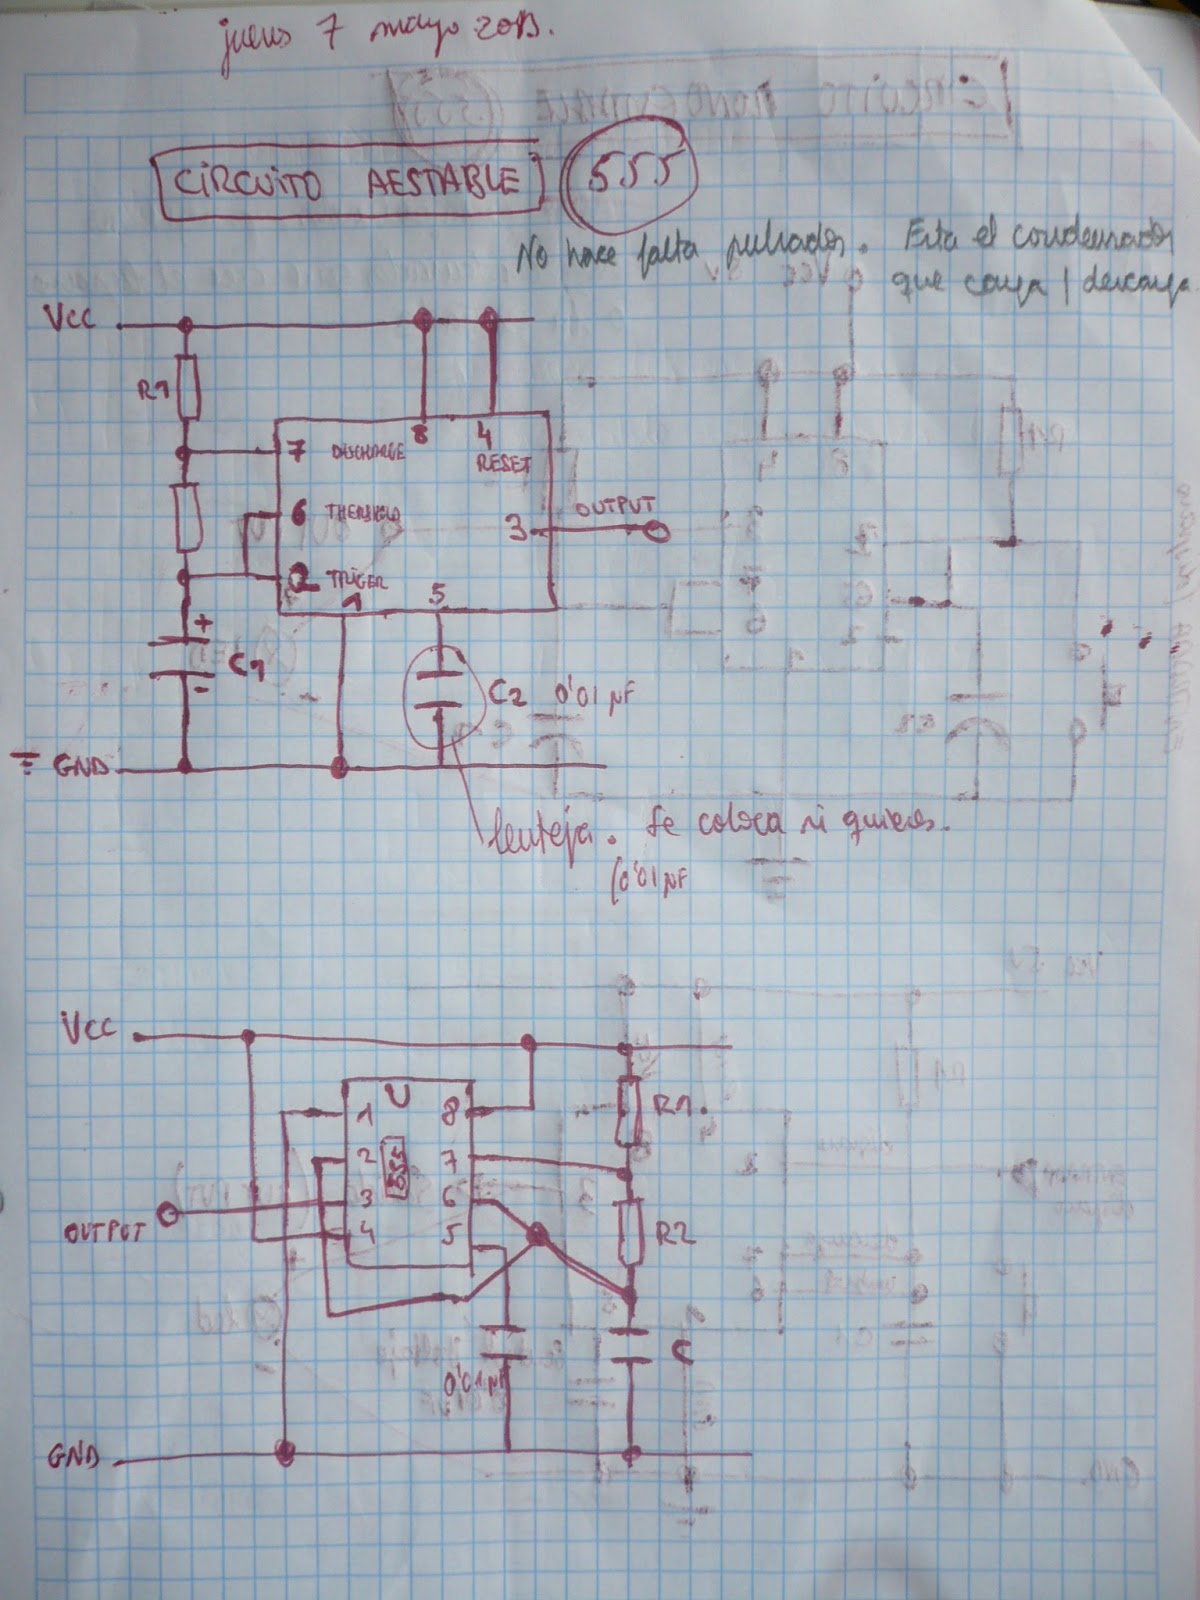 jueves 7 mayo 2013.
CIRCUITO AESTABLE 555
No hace falta pulsador. Esta el condensador
que carga / descarga
Vcc
R1
7 DISCHARGE
8
4
RESET
6 THERSHOLD
3
OUTPUT
2 TRIGER
1
5
+
C1
-
C2 0'01 µF
GND
lenteja. Se coloca si quieres.
(0'01 µF
Vcc
U
1
8
R1
2
555
7
3
6
4
5
OUTPUT
R2
0'01 µF
C
GND